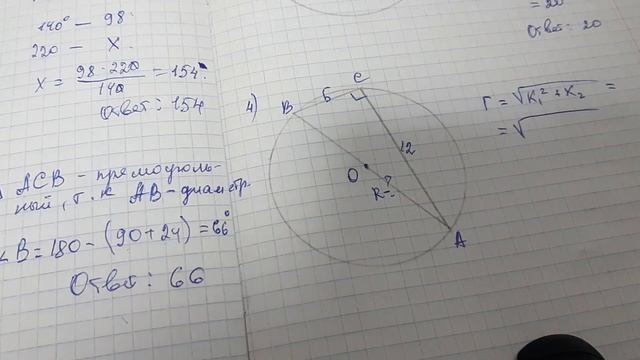 140° — 98
220 — X
X = 98 · 220 / 140 = 154.
Ответ: 154
ACB - прямоуголь-
ный, т.к AB - диаметр.
∠B = 180 - (90 + 24) = 66°
Ответ: 66
4)
B
6
C
12
O
R=?
A
= 20
Ответ: 20
r = √K₁² + K₂ =
= √